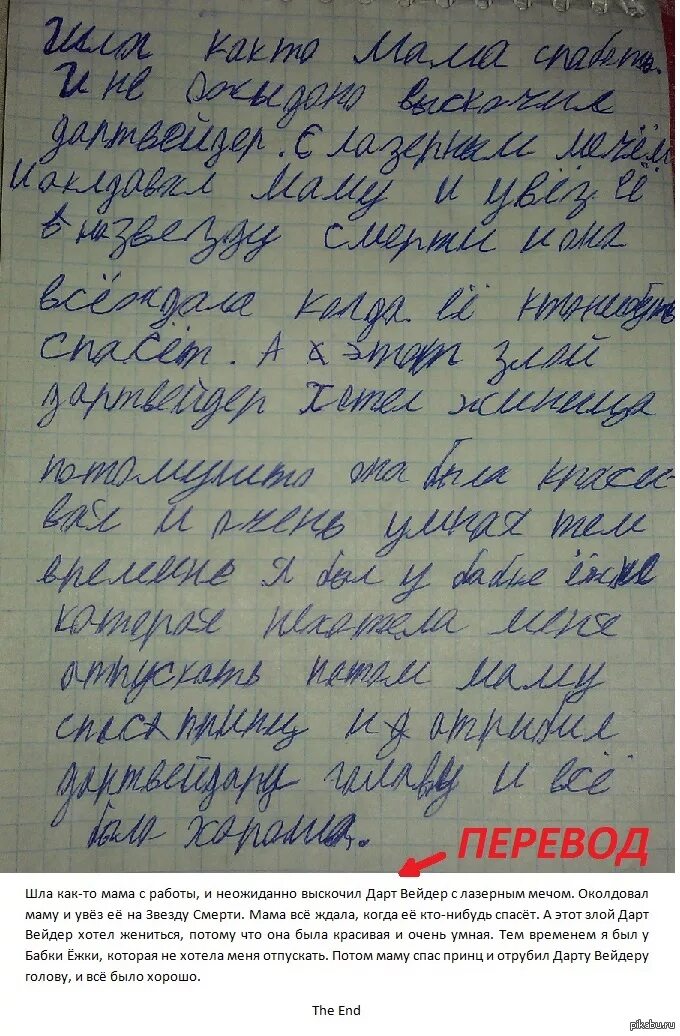 Шла както Мама сработы.
И не ожыдано выскочил
дартвейдер. С лазерным мечём
И аклдавал маму и увёз её
в назвезду смерти и она
всёждала когда её ктонебуть
спасёт. А этот злой
дартвейдер хотел жиница
потомушто она была краси-
вая и очень умная тем
времене я был у бабые ёжке
которая нехотела меня
отпускать патом маму
спас принц и атрибил
дартвейдару галаву и всё
было харашо.
ПЕРЕВОД
Шла как-то мама с работы, и неожиданно выскочил Дарт Вейдер с лазерным мечом. Околдовал
маму и увёз её на Звезду Смерти. Мама всё ждала, когда её кто-нибудь спасёт. А этот злой Дарт
Вейдер хотел жениться, потому что она была красивая и очень умная. Тем временем я был у
Бабки Ёжки, которая не хотела меня отпускать. Потом маму спас принц и отрубил Дарту Вейдеру
голову, и всё было хорошо.
The End
pikabu.ru